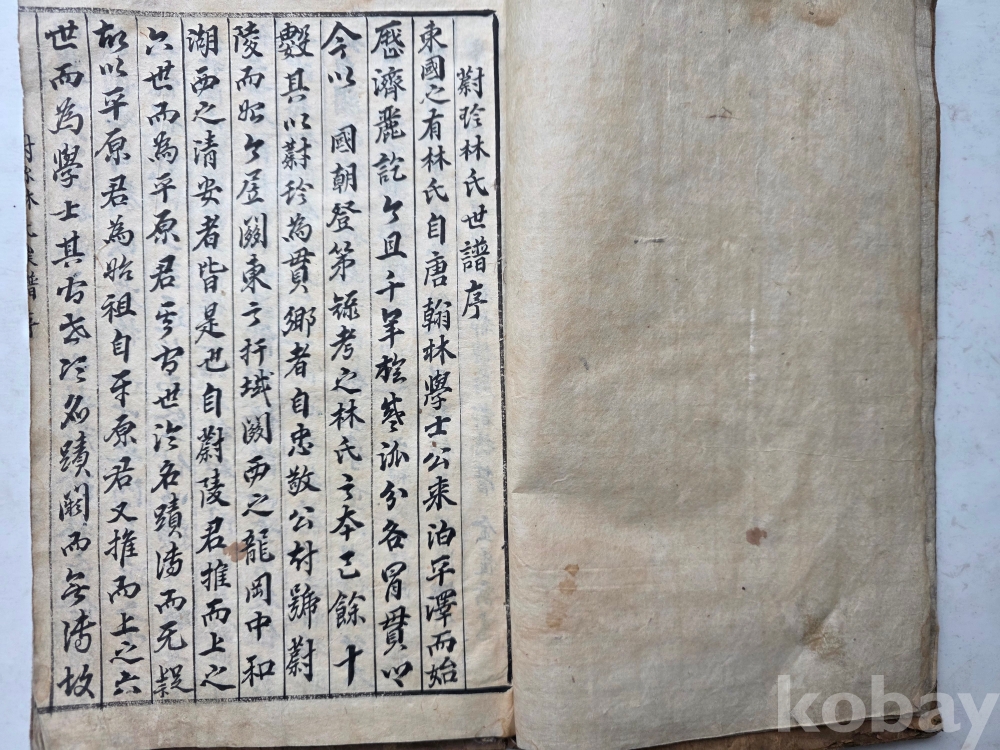 蔚珍林氏世譜序
東國之有林氏自唐翰林學士公来泊平澤而始
歷濟麗訖今且千年𫞕盛派分各冒貫
今以 國朝登第錄考之林氏之本已餘十
數其以蔚珍為貫鄉者自忠敬公封號蔚
陵而始今居關東之扞城關西之龍岡中和
湖西之清安者皆是也自蔚陵君推而上之
六世而為平原君其官世諱名蹟傳而无疑
故以平原君為始祖自平原君又推而上之六
世而為學士其官世諱名蹟闕而無傳故
kobay